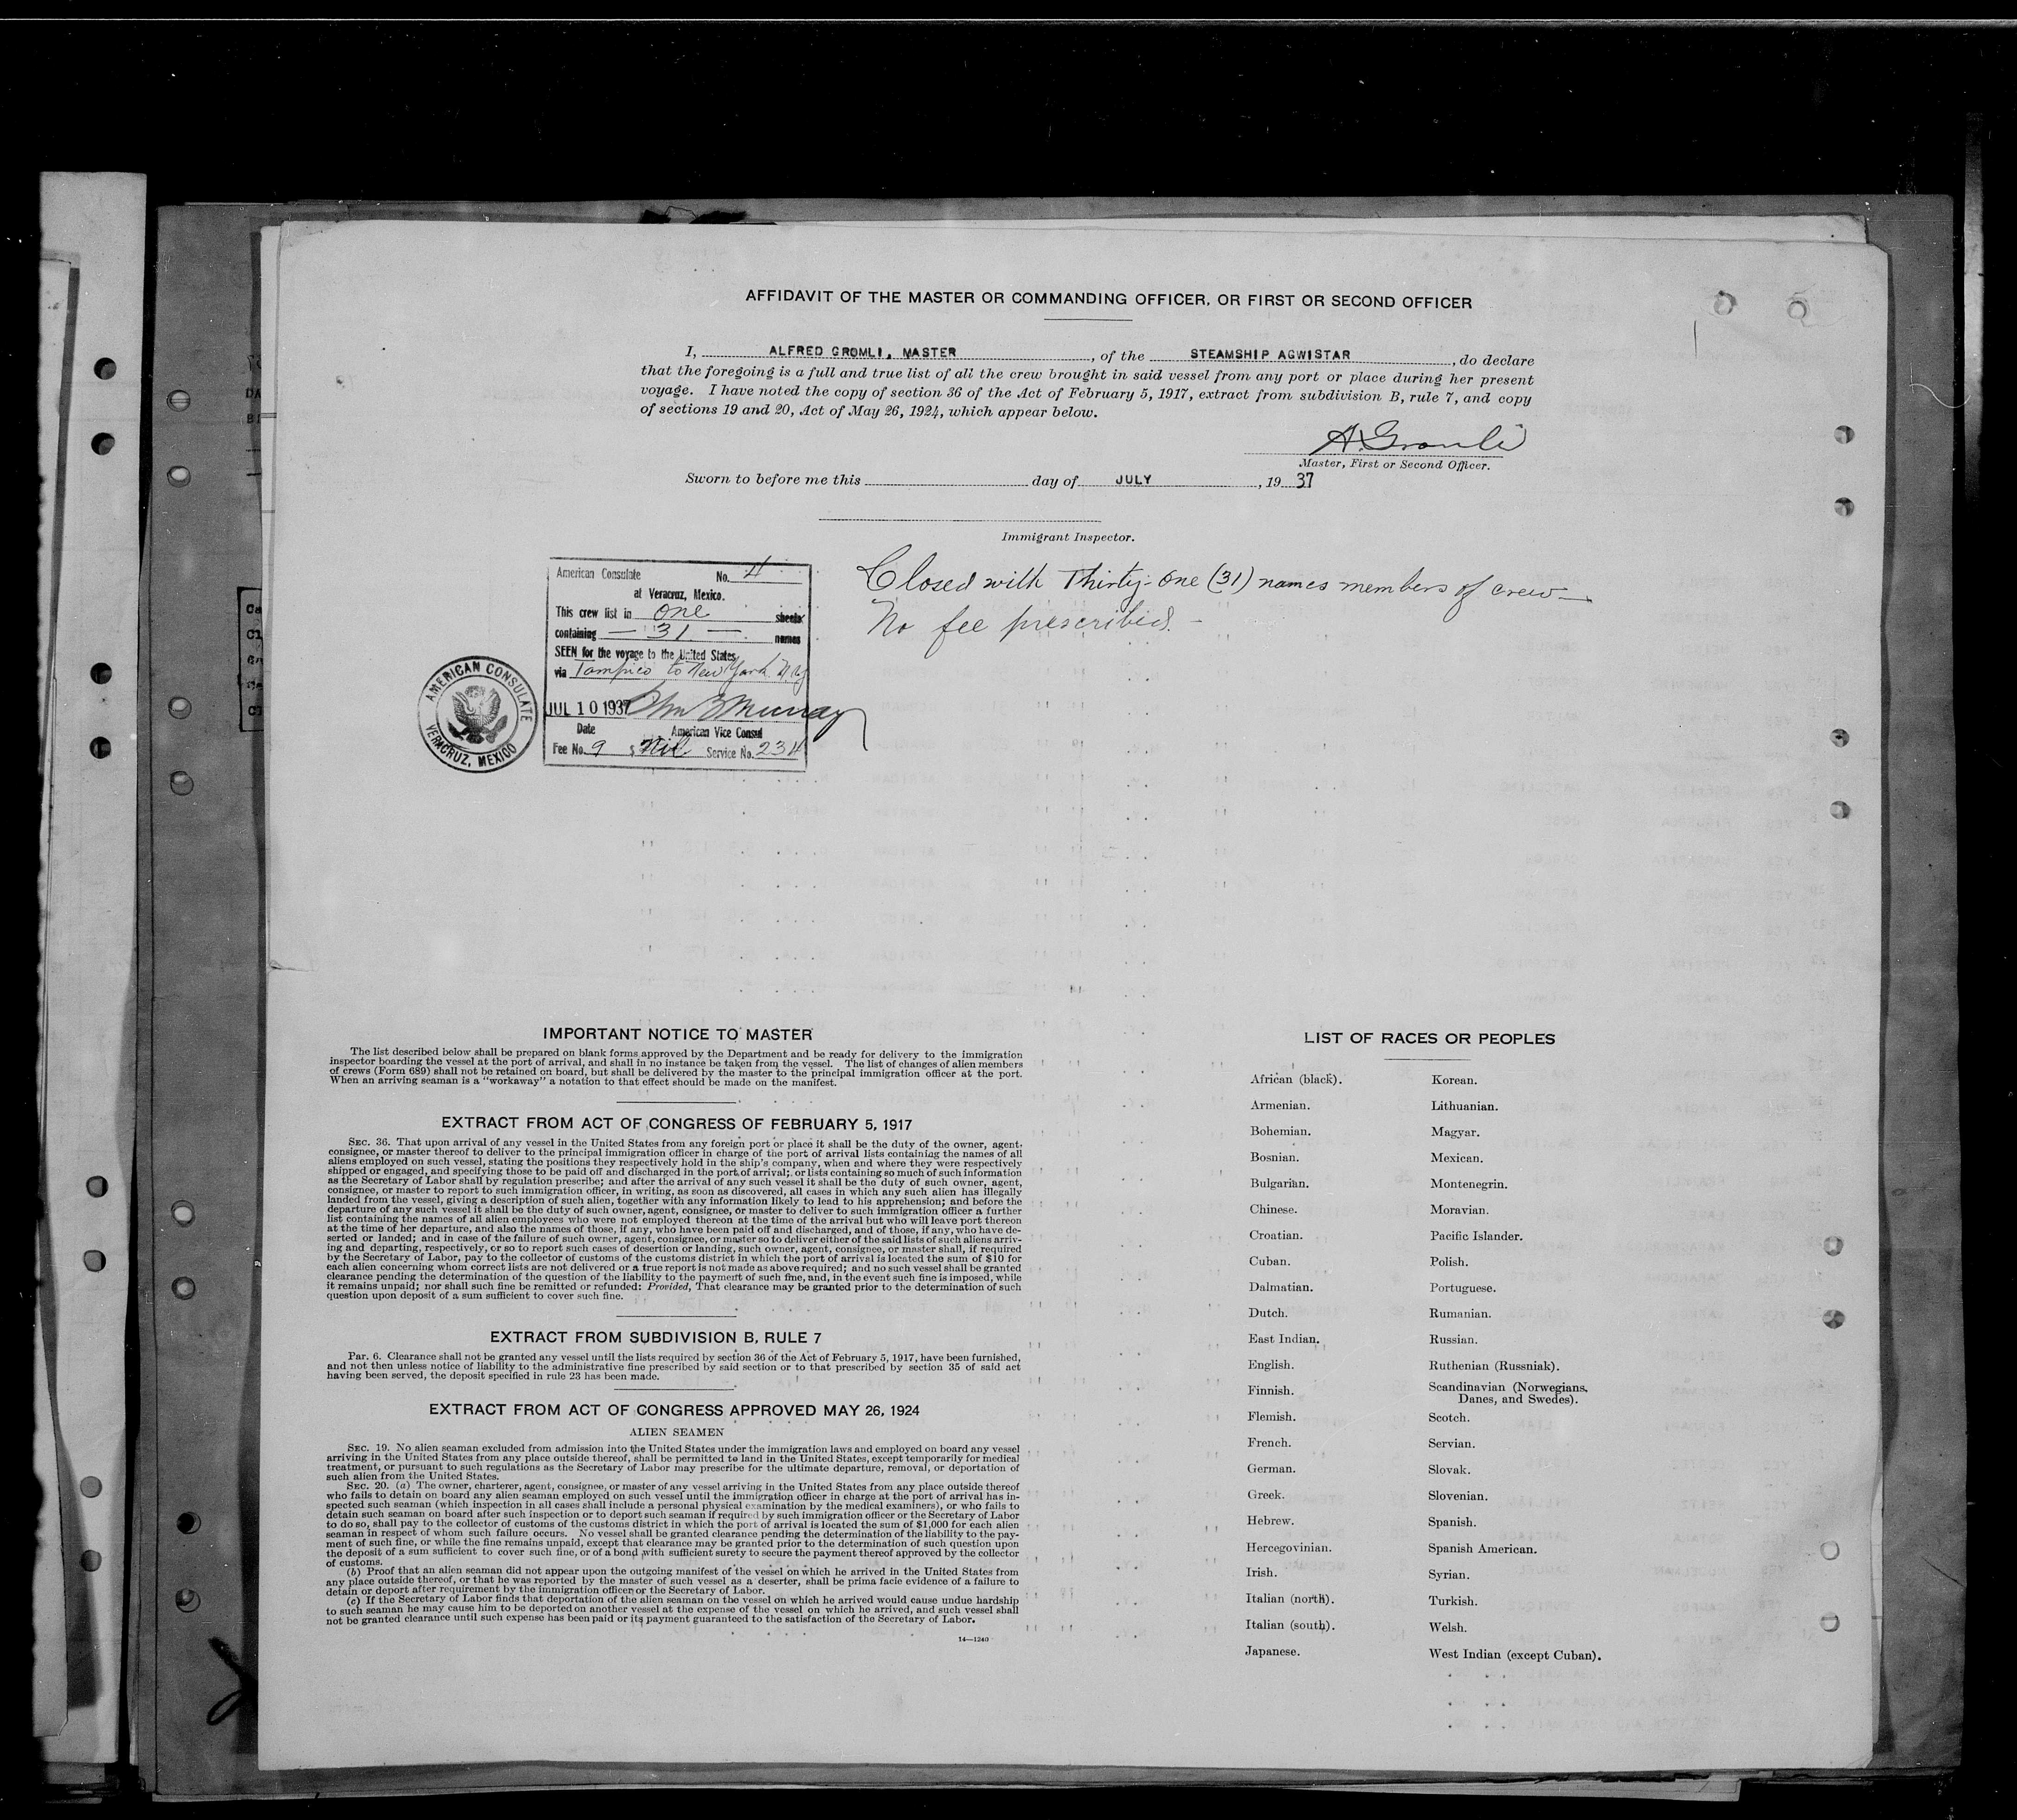 AFFIDAVIT OF THE MASTER OR COMMANDING OFFICER, OR FIRST OR SECOND OFFICER
I, ALFRED GROMLI, MASTER, of the STEAMSHIP AGWISTAR, do declare
that the foregoing is a full and true list of all the crew brought in said vessel from any port or place during her present
voyage. I have noted the copy of section 36 of the Act of February 5, 1917, extract from subdivision B, rule 7, and copy
of sections 19 and 20, Act of May 26, 1924, which appear below.
A. Gromli
Master, First or Second Officer.
Sworn to before me this day of JULY, 19 37
Immigrant Inspector.
American Consulate No. 4
at Veracruz, Mexico.
This crew list in one sheets
containing — 31 — names
SEEN for the voyage to the United States
via Tampico to New York N.Y
JUL 10 1937 Murray
Date American Vice Consul
Fee No. 9 $ Nil Service No. 234
AMERICAN CONSULATE
VERACRUZ, MEXICO
Closed with Thirty-one (31) names members of crew—
No fee prescribed. -
IMPORTANT NOTICE TO MASTER
The list described below shall be prepared on blank forms approved by the Department and be ready for delivery to the immigration
inspector boarding the vessel at the port of arrival, and shall in no instance be taken from the vessel. The list of changes of alien members
of crews (Form 689) shall not be retained on board, but shall be delivered by the master to the principal immigration officer at the port.
When an arriving seaman is a "workaway" a notation to that effect should be made on the manifest.
EXTRACT FROM ACT OF CONGRESS OF FEBRUARY 5, 1917
SEC. 36. That upon arrival of any vessel in the United States from any foreign port or place it shall be the duty of the owner, agent,
consignee, or master thereof to deliver to the principal immigration officer in charge of the port of arrival lists containing the names of all
aliens employed on such vessel, stating the positions they respectively hold in the ship's company, when and where they were respectively
shipped or engaged, and specifying those to be paid off and discharged in the port of arrival; or lists containing so much of such information
as the Secretary of Labor shall by regulation prescribe; and after the arrival of any such vessel it shall be the duty of such owner, agent,
consignee, or master to report to such immigration officer, in writing, as soon as discovered, all cases in which any such alien has illegally
landed from the vessel, giving a description of such alien, together with any information likely to lead to his apprehension; and before the
departure of any such vessel it shall be the duty of such owner, agent, consignee, or master to deliver to such immigration officer a further
list containing the names of all alien employees who were not employed thereon at the time of the arrival but who will leave port thereon
at the time of her departure, and also the names of those, if any, who have been paid off and discharged, and of those, if any, who have de-
serted or landed; and in case of the failure of such owner, agent, consignee, or master so to deliver either of the said lists of such aliens arriv-
ing and departing, respectively, or so to report such cases of desertion or landing, such owner, agent, consignee, or master shall, if required
by the Secretary of Labor, pay to the collector of customs of the customs district in which the port of arrival is located the sum of $10 for
each alien concerning whom correct lists are not delivered or a true report is not made as above required; and no such vessel shall be granted
clearance pending the determination of the question of the liability to the payment of such fine, and, in the event such fine is imposed, while
it remains unpaid; nor shall such fine be remitted or refunded: Provided, That clearance may be granted prior to the determination of such
question upon deposit of a sum sufficient to cover such fine.
EXTRACT FROM SUBDIVISION B, RULE 7
Par. 6. Clearance shall not be granted any vessel until the lists required by section 36 of the Act of February 5, 1917, have been furnished,
and not then unless notice of liability to the administrative fine prescribed by said section or to that prescribed by section 35 of said act
having been served, the deposit specified in rule 23 has been made.
EXTRACT FROM ACT OF CONGRESS APPROVED MAY 26, 1924
ALIEN SEAMEN
SEC. 19. No alien seaman excluded from admission into the United States under the immigration laws and employed on board any vessel
arriving in the United States from any place outside thereof, shall be permitted to land in the United States, except temporarily for medical
treatment, or pursuant to such regulations as the Secretary of Labor may prescribe for the ultimate departure, removal, or deportation of
such alien from the United States.
SEC. 20. (a) The owner, charterer, agent, consignee, or master of any vessel arriving in the United States from any place outside thereof
who fails to detain on board any alien seaman employed on such vessel until the immigration officer in charge at the port of arrival has in-
spected such seaman (which inspection in all cases shall include a personal physical examination by the medical examiners), or who fails to
detain such seaman on board after such inspection or to deport such seaman if required by such immigration officer or the Secretary of Labor
to do so, shall pay to the collector of customs of the customs district in which the port of arrival is located the sum of $1,000 for each alien
seaman in respect of whom such failure occurs. No vessel shall be granted clearance pending the determination of the liability to the pay-
ment of such fine, or while the fine remains unpaid, except that clearance may be granted prior to the determination of such question upon
the deposit of a sum sufficient to cover such fine, or of a bond with sufficient surety to secure the payment thereof approved by the collector
of customs.
(b) Proof that an alien seaman did not appear upon the outgoing manifest of the vessel on which he arrived in the United States from
any place outside thereof, or that he was reported by the master of such vessel as a deserter, shall be prima facie evidence of a failure to
detain or deport after requirement by the immigration officer or the Secretary of Labor.
(c) If the Secretary of Labor finds that deportation of the alien seaman on the vessel on which he arrived would cause undue hardship
to such seaman he may cause him to be deported on another vessel at the expense of the vessel on which he arrived, and such vessel shall
not be granted clearance until such expense has been paid or its payment guaranteed to the satisfaction of the Secretary of Labor.
14—1240
LIST OF RACES OR PEOPLES
African (black).
Armenian.
Bohemian.
Bosnian.
Bulgarian.
Chinese.
Croatian.
Cuban.
Dalmatian.
Dutch.
East Indian.
English.
Finnish.
Flemish.
French.
German.
Greek.
Hebrew.
Hercegovinian.
Irish.
Italian (north).
Italian (south).
Japanese.
Korean.
Lithuanian.
Magyar.
Mexican.
Montenegrin.
Moravian.
Pacific Islander.
Polish.
Portuguese.
Rumanian.
Russian.
Ruthenian (Russniak).
Scandinavian (Norwegians,
Danes, and Swedes).
Scotch.
Servian.
Slovak.
Slovenian.
Spanish.
Spanish American.
Syrian.
Turkish.
Welsh.
West Indian (except Cuban).